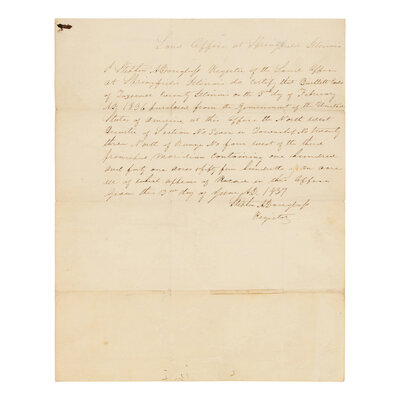 Land Office at Springfield Illinois
I Stephen A Douglass Register of the Land Office
at Springfield Illinois do certify that
of Tazewell County Illinois on the 5th day of February
AD, 1836 purchased from the Government of the United
States of America at this Office the North West
Quarter of Section No in Township No Twenty
three North of Range No four west of the third
principal Meridian containing one hundred
and forty one acres of an acre
as of Record in this Office
Given this day of AD. 1837
Stephen A Douglass
Register